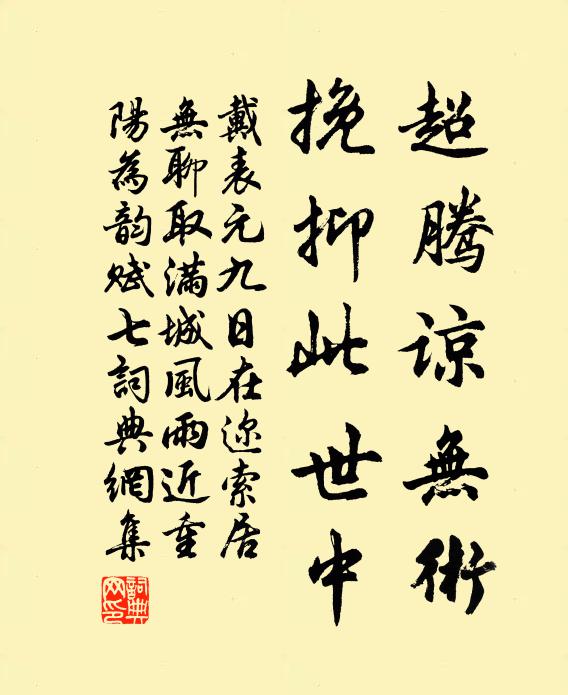 超騰諒無術
挽抑此世中
戴表元九日在迩索居
無聊取滿城風雨近重
陽為韵賦七詞典網集
詞典
网印